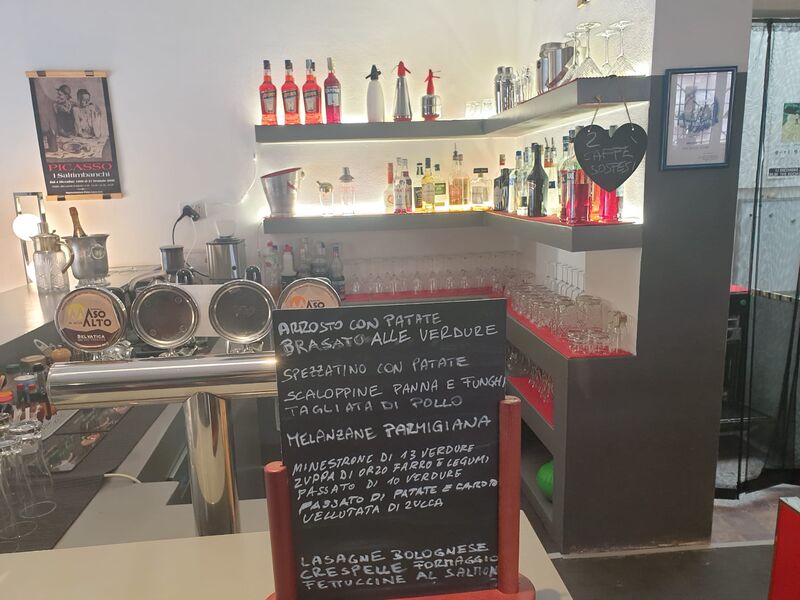 PICASSO
i Saltimbanchi
2
CAFFÈ
SOSPESI
MASO
ALTO
SELVATICA
ARROSTO CON PATATE
BRASATO ALLE VERDURE
SPEZZATINO CON PATATE
SCALOPPINE PANNA E FUNGHI
TAGLIATA DI POLLO
MELANZANE PARMIGIANA
MINESTRONE DI 13 VERDURE
ZUPPA DI ORZO FARRO E LEGUMI
PASSATO DI 10 VERDURE
PASSATO DI PATATE E CAROTE
VELLUTATA DI ZUCCA
LASAGNE BOLOGNESE
CRESPELLE FORMAGGIO
FETTUCCINE AL SALMON